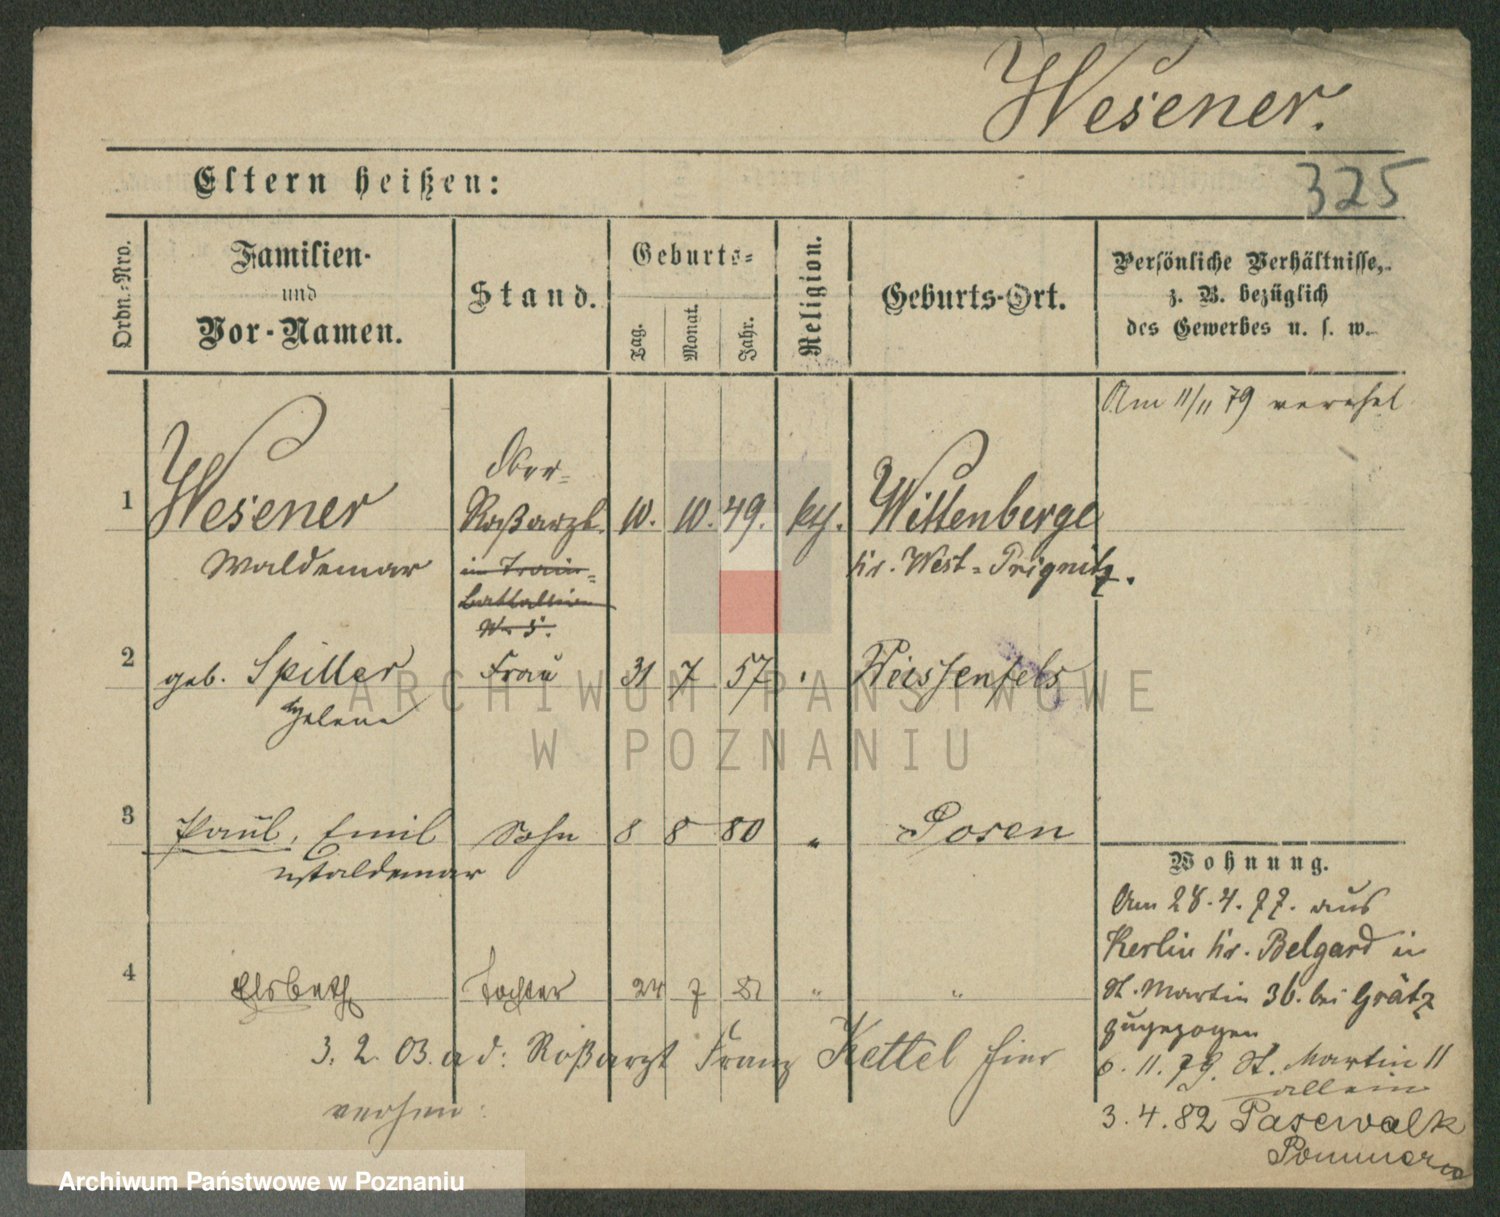 Wesener.
325
Eltern heißen:
Ordn.-Nro.
Familien-
und
Vor-Namen.
Stand.
Geburts-
Tag.
Monat.
Jahr.
Religion.
Geburts-Ort.
Persönliche Verhältnisse,
z. B. bezüglich
des Gewerbes u. s. w.
Am 11/11 79 verehel
1 Wesener Waldemar
Ober-
Roßarzt
im Train-
Bataillon
No 5.
10. 10. 49.
Wittenberge
Kr. West-Prignitz.
2 geb. Spiller Frau 31 7 57 Weissenfels
Helene
3 Paul, Emil Sohn 8 8 80 " Posen
Waldemar
4 Elsbeth Tochter 7 81 " "
3. 2. 03. a d: Roßarzt Franz Kettel hier
Wohnung.
Am 28.4.77. aus
Kerlin Kr. Belgard in
St. Martin 36. bei Grätz
zugezogen
6. 11. 79. St. Martin 11
allein
3.4.82 Pasewalk
Pommern
ARCHIWUM PAŃSTWOWE
W POZNANIU
Archiwum Państwowe w Poznaniu